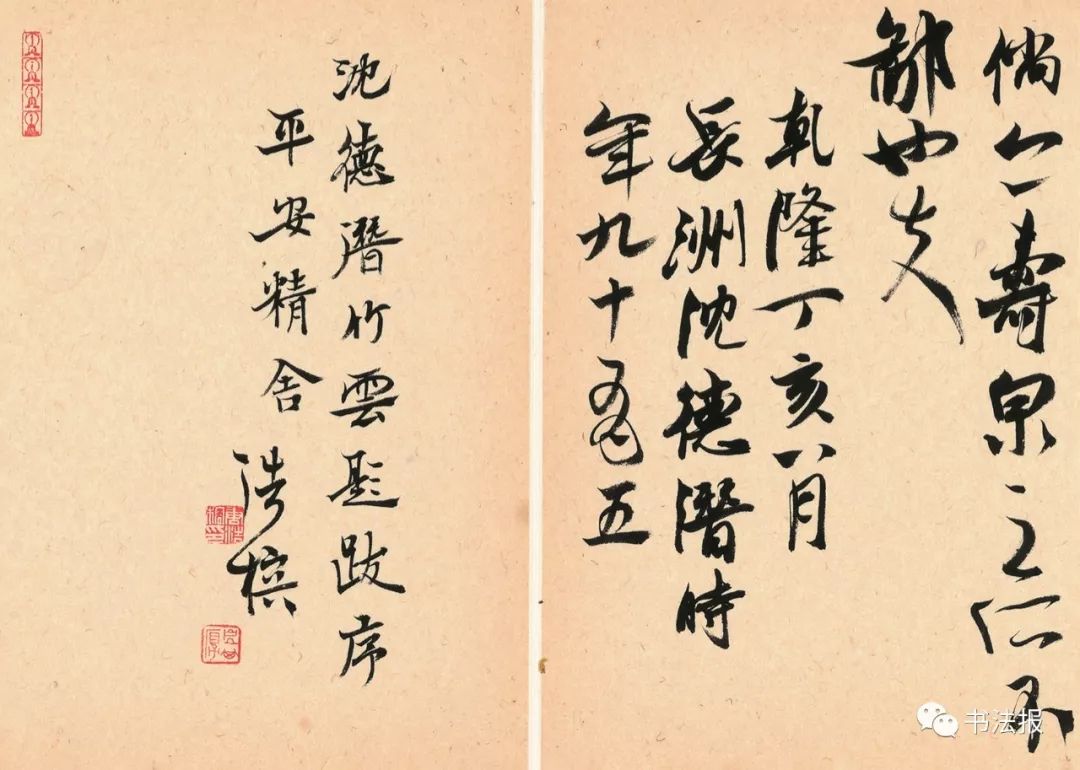 倘亦壽泉之所不
鄙也夫
乾隆丁亥八月
長洲沈德潛時
年九十有五
沈德潛竹雲題跋序
平安精舍 浩
书法报